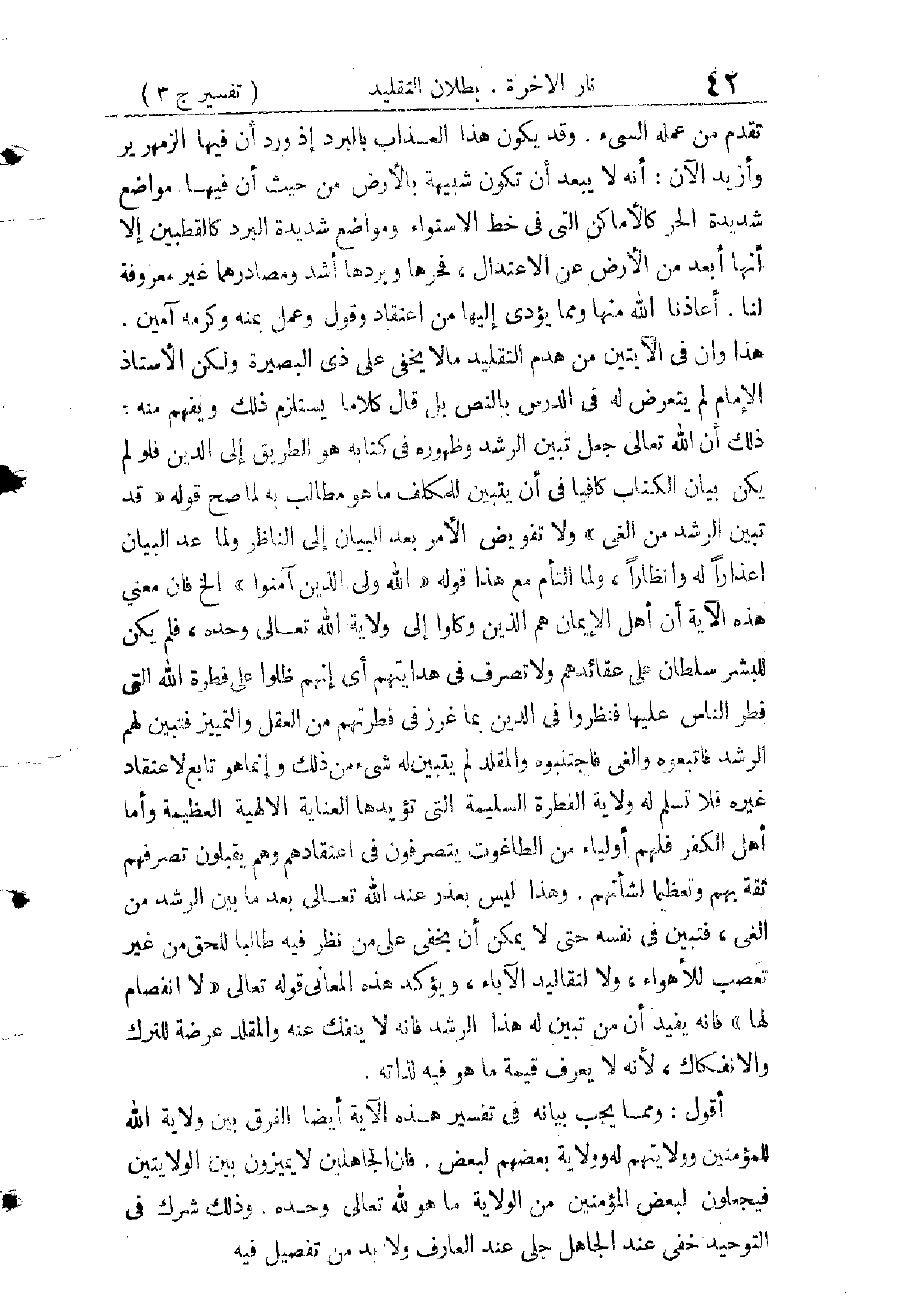 ٤٢ نار الآخرة . بطلان التقليد ( تفسير ج ٣ )
تقدم من عمله السيء . وقد يكون هذا العذاب بالبرد إذ ورد أن فيها الزمهرير
وأزيد الآن : أنه لا يبعد أن تكون شبيهة بالأرض من حيث أن فيها مواضع
شديدة الحر كالأماكن التى فى خط الاستواء ومواضع شديدة البرد كالقطبين إلا
أنها أبعد من الأرض عن الاعتدال ، فحرها وبردها أشد ومصادرهما غير معروفة
لنا . أعاذنا الله منها ومما يؤدى إليها من اعتقاد وقول وعمل بمنه وكرمه آمين .
هذا وان فى الآيتين من هدم التقليد مالا يخفى على ذى البصيرة ولكن الأستاذ
الإمام لم يتعرض له فى الدرس بالنص بل قال كلاما يستلزم ذلك ويفهم منه :
ذلك أن الله تعالى جعل تبين الرشد وظهوره فى كتابه هو الطريق إلى الدين فلو لم
يكن بيان الكتاب كافيا فى أن يتبين للمكلف ما هو مطالب به لما صح قوله « قد
تبين الرشد من الغى » ولا تفويض الأمر بعد البيان إلى الناظر ولما عد البيان
اعذاراً له وانظاراً ، ولما التأم مع هذا قوله « الله ولى الذين آمنوا » الخ فان معني
هذه الآية أن أهل الإيمان هم الذين وكلوا إلى ولاية الله تعالى وحده ، فلم يكن
للبشر سلطان على عقائدهم ولا تصرف فى هدايتهم أى إنهم ظلوا على فطرة الله التى
فطر الناس عليها فنظروا فى الدين بما غرز فى فطرتهم من العقل والتمييز فتبين لهم
الرشد فاتبعوه والغى فاجتنبوه والمقلد لم يتبين له شىء من ذلك وإنما هو تابع لاعتقاد
غيره فلا تسلم له ولاية الفطرة السليمة التى تؤيدها العناية الالهية العظيمة وأما
أهل الكفر فلهم أولياء من الطاغوت يتصرفون فى اعتقادهم وهم يقبلون تصرفهم
ثقة بهم وتعظيما لشأنهم . وهذا ليس بعذر عند الله تعالى بعد ما بين الرشد من
الغى ، فتبين فى نفسه حتى لا يمكن أن يخفى على من نظر فيه طالبا للحق من غير
تعصب للأهواء ، ولا لتقاليد الآباء ، ويؤكد هذه المعانى قوله تعالى « لا انفصام
لها » فانه يفيد أن من تبين له هذا الرشد فانه لا ينفك عنه والمقلد عرضة للترك
والانفكاك ، لأنه لا يعرف قيمة ما هو فيه لذاته .
أقول : ومما يجب بيانه فى تفسير هذه الآية أيضا الفرق بين ولاية الله
للمؤمنين وولايتهم له وولاية بعضهم لبعض . فان الجاهلين لا يميزون بين الولايتين
فيجعلون لبعض المؤمنين من الولاية ما هو لله تعالى وحده . وذلك شرك فى
التوحيد خفى عند الجاهل جلى عند العارف ولا بد من تفصيل فيه